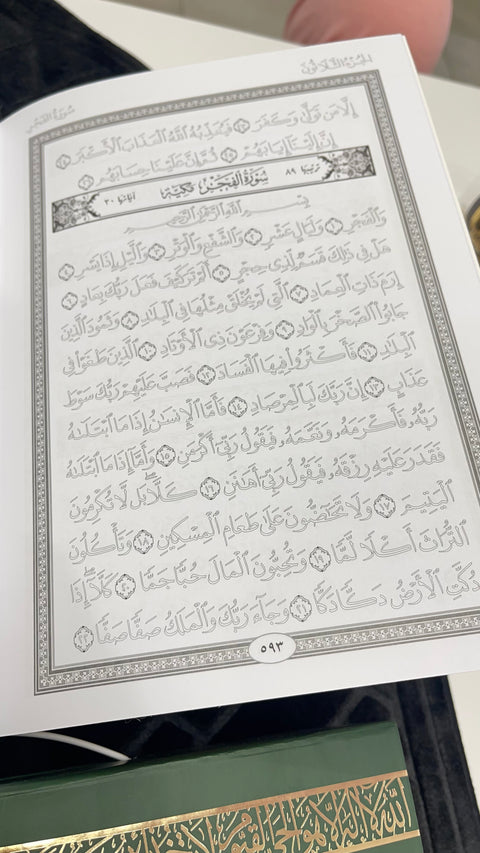 الجزء الثلاثون
سورة الفجر
إِلَّا مَن تَوَلَّىٰ وَكَفَرَ ٢٣ فَيُعَذِّبُهُ ٱللَّهُ ٱلْعَذَابَ ٱلْأَكْبَرَ ٢٤
إِنَّ إِلَيْنَآ إِيَابَهُمْ ٢٥ ثُمَّ إِنَّ عَلَيْنَا حِسَابَهُم ٢٦
ترتيبها ٨٩ سُورَةُ الفَجْرِ مَكِّيَّة آياتها ٣٠
بِسْمِ ٱللَّهِ ٱلرَّحْمَٰنِ ٱلرَّحِيمِ
وَٱلْفَجْرِ ١ وَلَيَالٍ عَشْرٍ ٢ وَٱلشَّفْعِ وَٱلْوَتْرِ ٣ وَٱلَّيْلِ إِذَا يَسْرِ ٤
هَلْ فِى ذَٰلِكَ قَسَمٌ لِّذِى حِجْرٍ ٥ أَلَمْ تَرَ كَيْفَ فَعَلَ رَبُّكَ بِعَادٍ ٦
إِرَمَ ذَاتِ ٱلْعِمَادِ ٧ ٱلَّتِى لَمْ يُخْلَقْ مِثْلُهَا فِى ٱلْبِلَٰدِ ٨ وَثَمُودَ ٱلَّذِينَ
جَابُوا۟ ٱلصَّخْرَ بِٱلْوَادِ ٩ وَفِرْعَوْنَ ذِى ٱلْأَوْتَادِ ١٠ ٱلَّذِينَ طَغَوْا۟ فِى
ٱلْبِلَٰدِ ١١ فَأَكْثَرُوا۟ فِيهَا ٱلْفَسَادَ ١٢ فَصَبَّ عَلَيْهِمْ رَبُّكَ سَوْطَ
عَذَابٍ ١٣ إِنَّ رَبَّكَ لَبِٱلْمِرْصَادِ ١٤ فَأَمَّا ٱلْإِنسَٰنُ إِذَا مَا ٱبْتَلَىٰهُ
رَبُّهُۥ فَأَكْرَمَهُۥ وَنَعَّمَهُۥ فَيَقُولُ رَبِّىٓ أَكْرَمَنِ ١٥ وَأَمَّآ إِذَا مَا ٱبْتَلَىٰهُ
فَقَدَرَ عَلَيْهِ رِزْقَهُۥ فَيَقُولُ رَبِّىٓ أَهَٰنَنِ ١٦ كَلَّا ۖ بَل لَّا تُكْرِمُونَ
ٱلْيَتِيمَ ١٧ وَلَا تَحَٰٓضُّونَ عَلَىٰ طَعَامِ ٱلْمِسْكِينِ ١٨ وَتَأْكُلُونَ
ٱلتُّرَاثَ أَكْلًا لَّمًّا ١٩ وَتُحِبُّونَ ٱلْمَالَ حُبًّا جَمًّا ٢٠ كَلَّآ ۖ إِذَا
دُكَّتِ ٱلْأَرْضُ دَكًّا دَكًّا ٢١ وَجَآءَ رَبُّكَ وَٱلْمَلَكُ صَفًّا صَفًّا ٢٢
٥٩٣
ٱللَّهُ لَآ إِلَٰهَ إِلَّا هُوَ ٱلْحَىُّ ٱلْقَيُّومُ